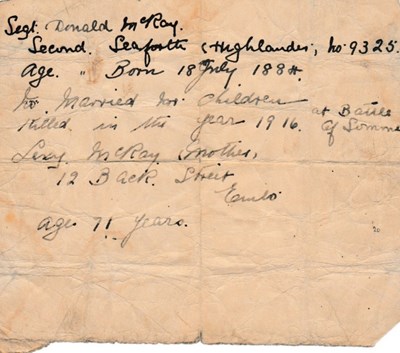 Segt. Donald McKay.
Second. Seaforth (Highlander, No 9325.
Age. " Born 18 July 1884.
No Married no children
Killed in the year 1916. at Battle
Of Somme
McKay (Mother,
12 Back. Street
Age 71 years.